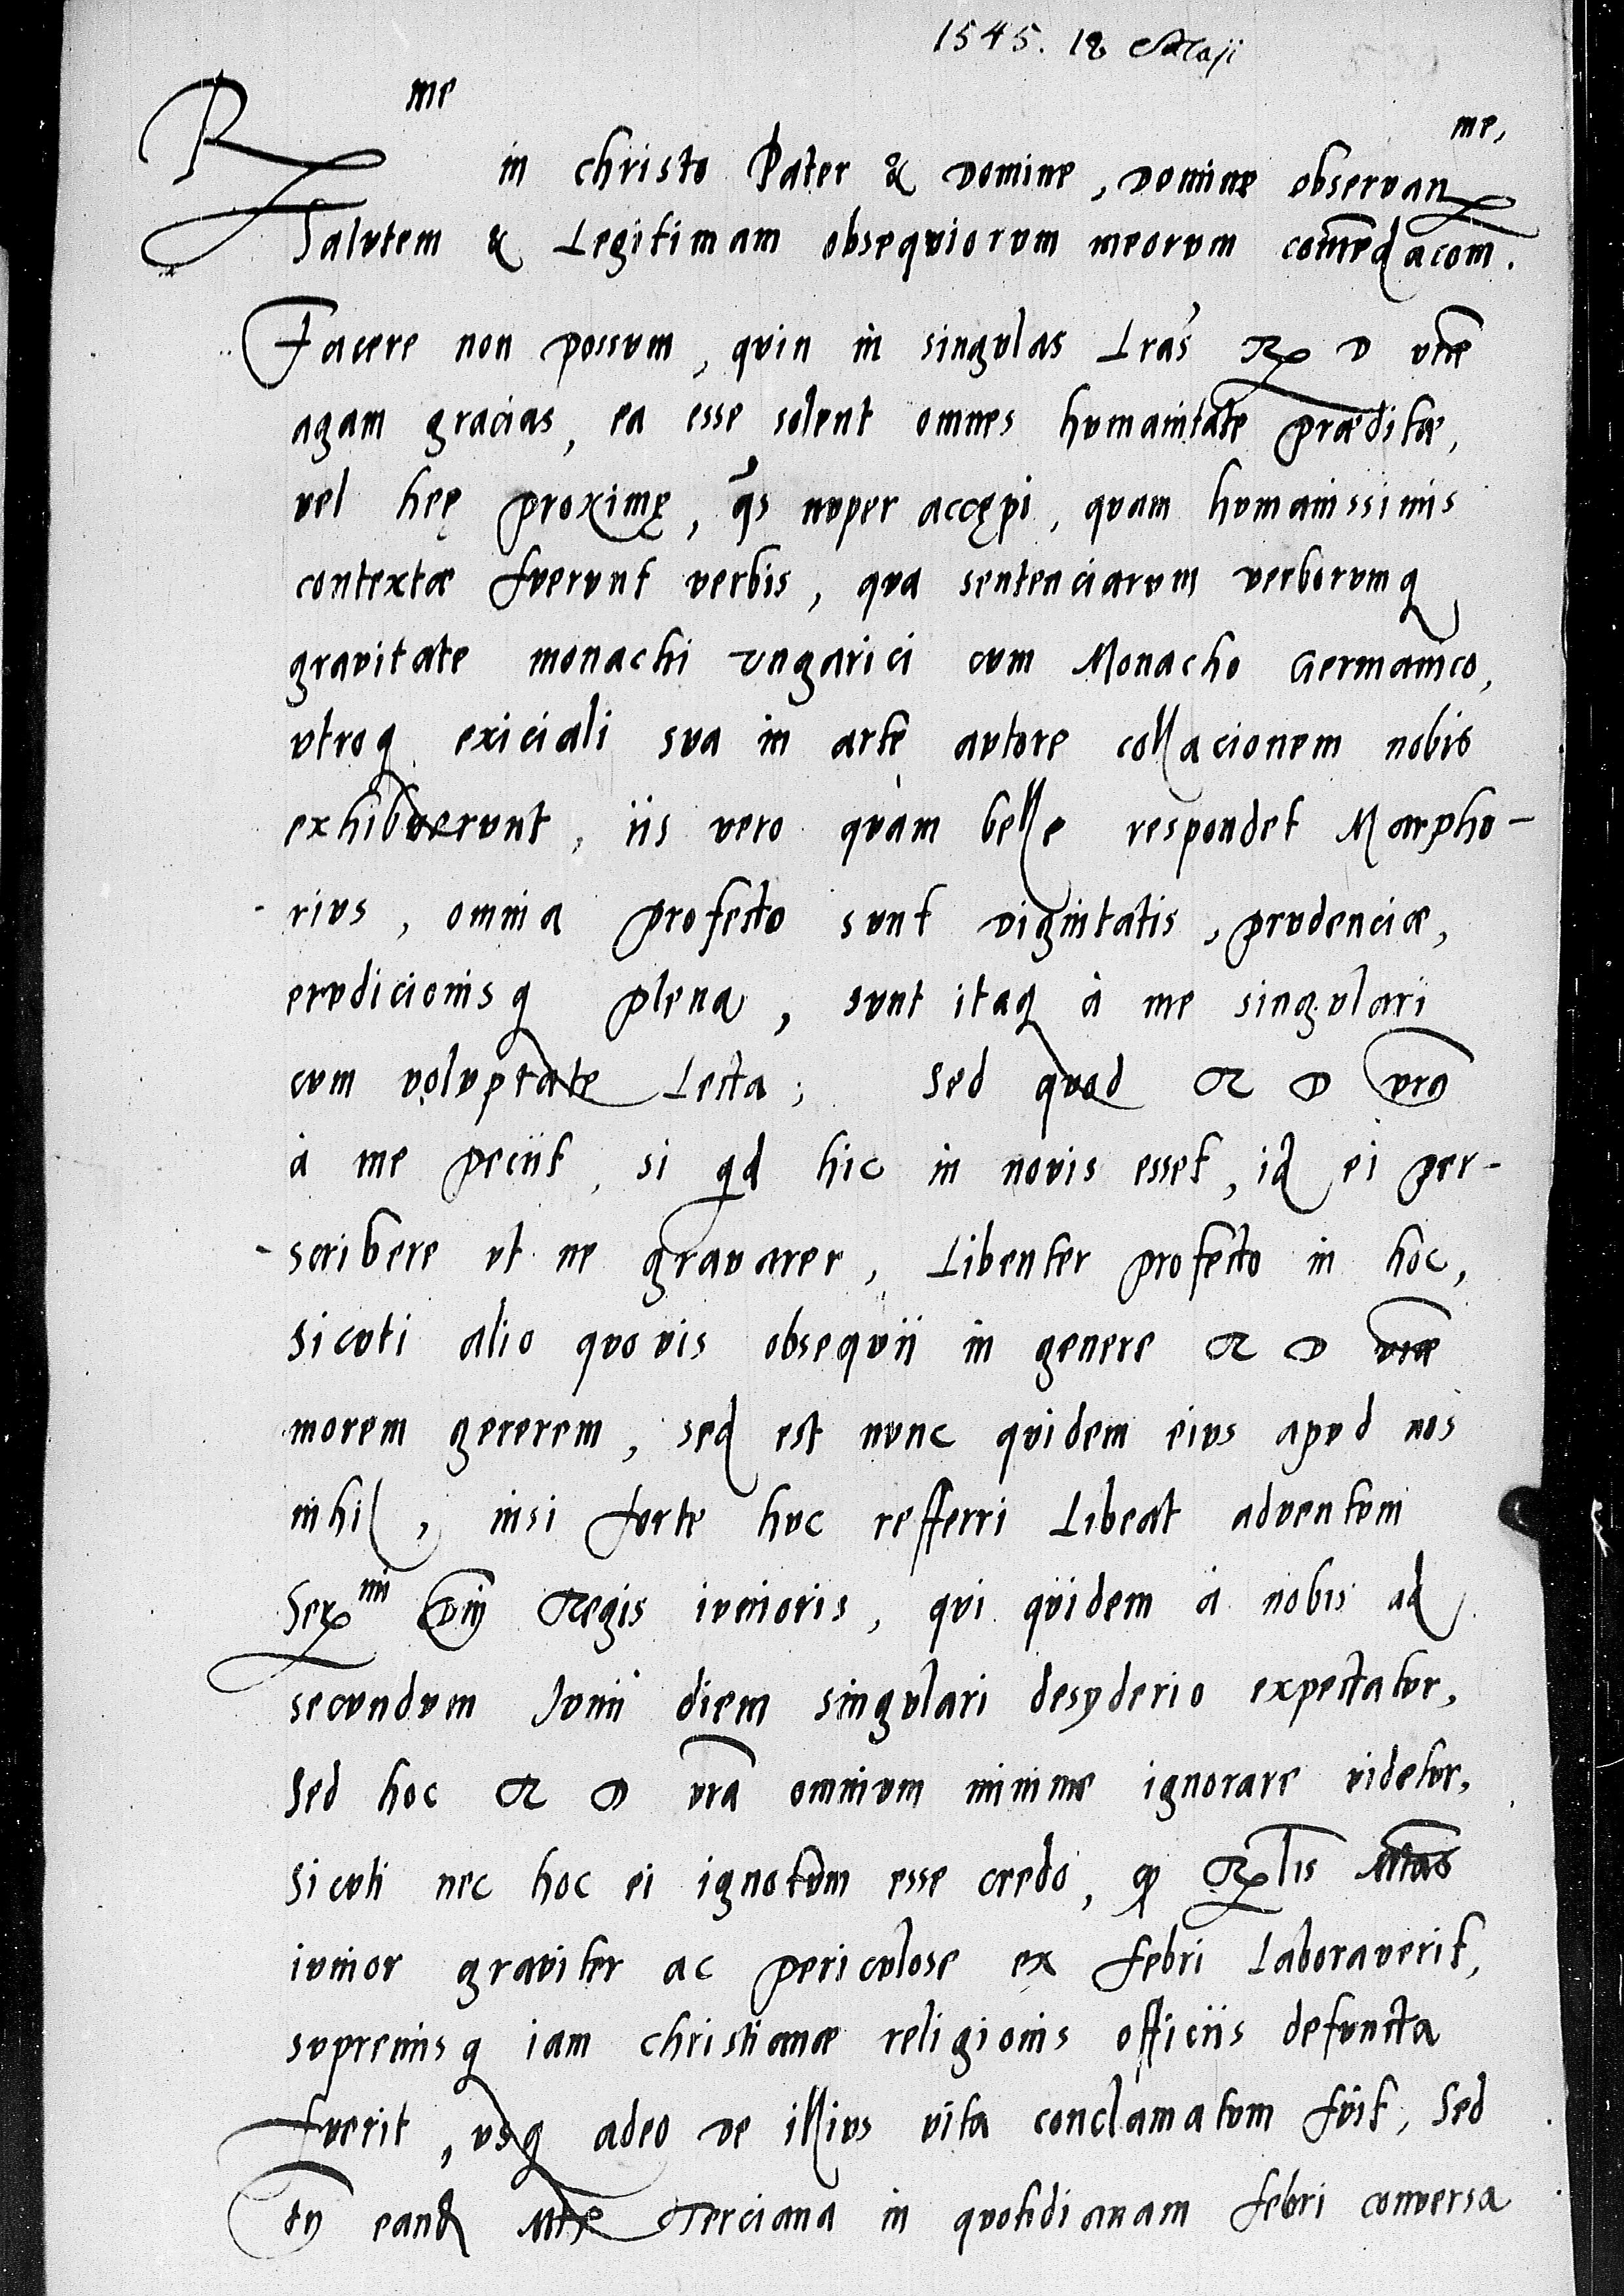 1545. 18 Maji
R me in christo Pater & Domine, Domine observan me,
Salutem & Legitimam obsequiorum meorum comēdacom.
Facere non possum, quin in singulas Lrās R D vrē
agam gracias, ea esse solent omnes humanitate præditæ,
vel heę proximę, qs nuper accępi, quam humanissimis
contextæ fuerunt verbis, qua sentenciarum verborumq
gravitate monachi Ungarici cum Monacho Germanico,
utroq exiciali sua in arte autore collacionem nobis
exhibuerunt, iis vero quàm belle respondet Marpho-
-rius, omnia profecto sunt dignitatis, prudenciæ,
erudicionisq plena, sunt itaq à me singulari
cum voluptate Lecta; Sed quod R D vra
à me peciit, si qd hic in novis esset, id ei per-
-scribere ut ne gravarer, Libenter profecto in hoc,
Sicuti alio quovis obsequii in genere R D vræ
morem gererem, sed est nunc quidem eius apud nos
nihil, nisi forte huc refferri Libeat adventum
Ser mi Dnj Regis iunioris, qui quidem à nobis ad
secundum Junii diem singulari desyderio expectatur,
Sed hoc R D vrā omnium minime ignorare videtur,
Sicuti nec hoc ei ignotum esse credo, qȝ R lis Mtas
iunior graviter ac periculose ex febri Laboraverit,
supremisq iam christianæ religionis officiis defuncta
fuerit, usq adeo de illius vita conclamatum fuit, Sed
eand Mte Terciana in quotidianam febri conversa